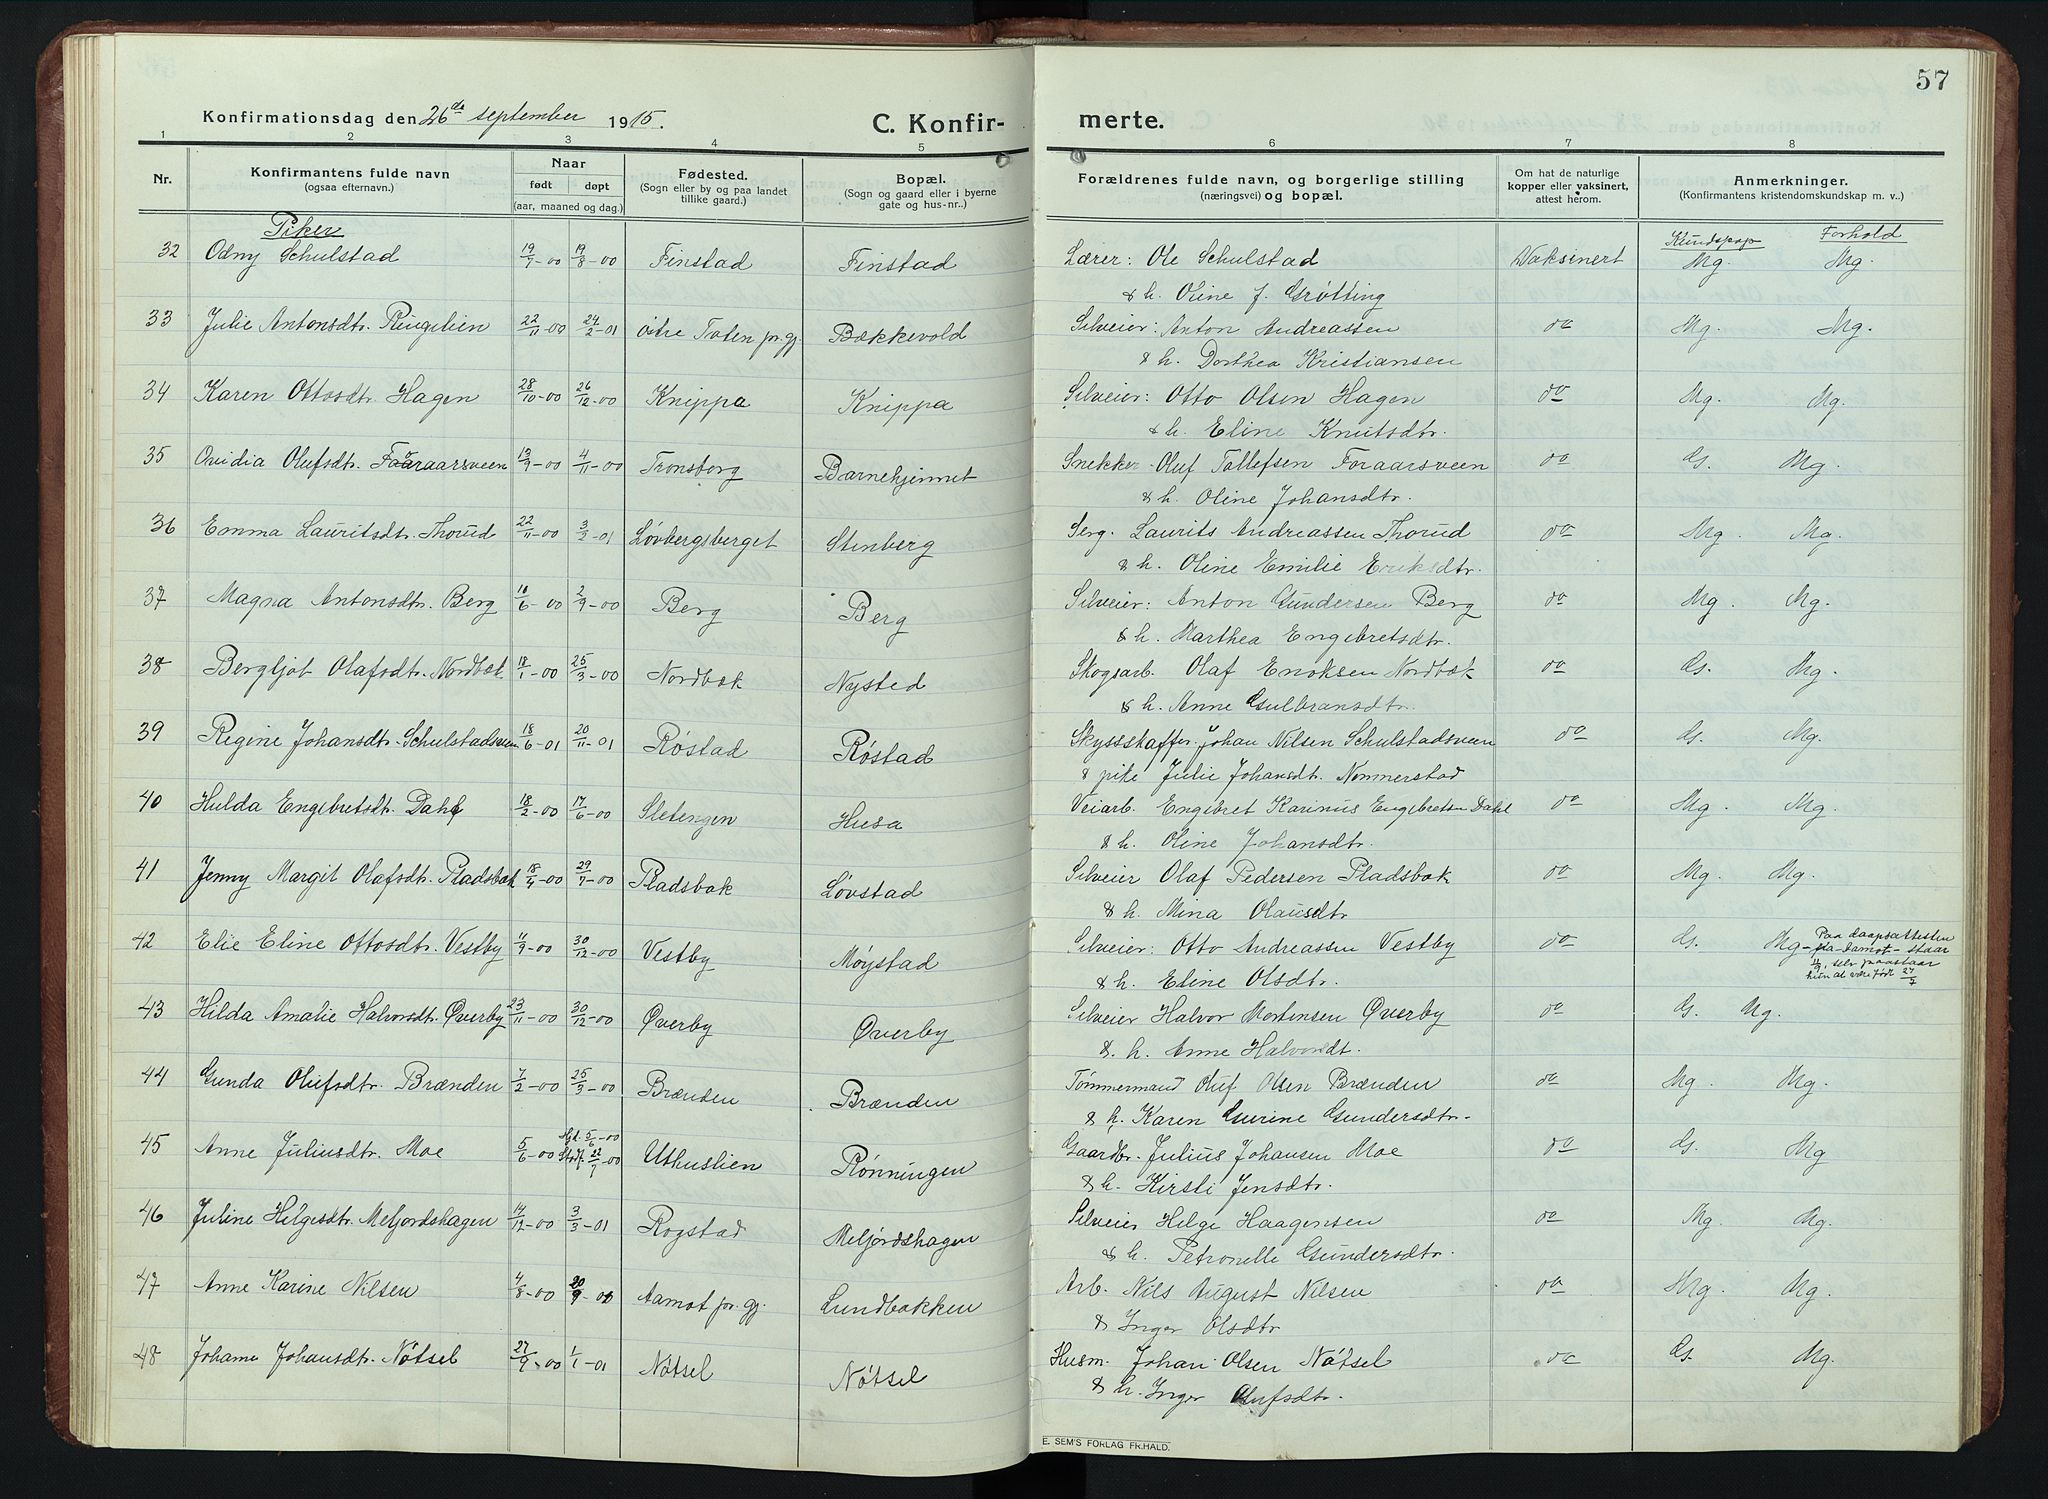 57
Konfirmationsdag den 26de september 1915.
C. Konfirmerte.
1 2 3 4 5 6 7 8
Nr.
Konfirmantens fulde navn
(ogsaa efternavn.)
Naar
født døpt
(aar, maaned og dag.)
Fødested.
(Sogn eller by og paa landet
tillike gaard.)
Bopæl.
(Sogn og gaard eller i byerne
gate og hus-nr..)
Forældrenes fulde navn, og borgerlige stilling
(næringsvei) og bopæl.
Om hat de naturlige
kopper eller vaksinert,
attest herom.
Anmerkninger.
(Konfirmantens kristendomskundskap m. v..)
Piker
Kundskap Forhold
32 Odny Schulstad 19/7-00 19/8-00 Finstad Finstad Lærer: Ole Schulstad Vaksinert Mg. Mg.
& h. Oline f. Grøtting
33 Julie Antonsdtr. Ringelien 22/11-00 24/2-01 Østre Toten pr. gj. Bækkevold Selveier: Anton Andreassen do Mg. Mg.
& h. Dorthea Kristiansen
34 Karen Ottosdtr. Hagen 28/10-00 26/12-00 Knippa Knippa Selveier: Otto Olsen Hagen do Mg. Mg.
& h. Eline Knutsdtr.
35 Ovidia Olufsdtr. Foraarsveen 13/9-00 4/11-00 Tronsborg Barnehjemmet Snekker Oluf Tollefsen Foraarsveen do G. Mg.
& h. Oline Johansdtr.
36 Emma Lauritsdtr. Thorud 22/11-00 3/2-01 Løvbergsberget Stenberg Serg. Laurits Andreassen Thorud do Mg. Mg.
& h. Oline Emilie Eriksdtr.
37 Magna Antonsdtr. Berg 10/6-00 2/9-00 Berg Berg Selveier: Anton Gundersen Berg do Mg. Mg.
& h. Marthea Engebretsdtr.
38 Bergljot Olafsdtr. Nordbæk 18/1-00 25/3-00 Nordbæk Nysted Skogsarb. Olaf Enoksen Nordbæk do G. Mg.
& h. Anne Gulbransdtr.
39 Regine Johansdtr. Schulstadsveen 18/6-01 20/11-01 Røstad Røstad Skyssskaffer Johan Nilsen Schulstadsveen do G. Mg.
& pike Julie Johansdtr. Nommerstad
40 Hulda Engebretsdtr. Dahl 18/2-00 17/6-00 Sletengen Husa Veiarb. Engebret Karinus Engebretsen Dahl do Mg. Mg.
& h. Oline Johansdtr.
41 Jenny Margit Olafsdtr. Pladsbæk 18/4-00 29/7-00 Pladsbæk Løvstad Selveier Olaf Pedersen Pladsbæk do Mg. Mg.
& h. Mina Olausdtr
42 Elie Eline Ottosdtr. Vestby 11/9-00 30/12-00 Vestby Møystad Selveier: Otto Andreassen Vestby do G. Mg- Paa daapsattesten
fra Aamot staar
11/9, selv paastaar
hun at være født 27/7
& h. Eline Olsdtr.
43 Hilda Amalie Halvorsdtr. Øverby 23/11-00 30/12-00 Øverby Øverby Selveier Halvor Mortensen Øverby do G. Mg.
& h. Anne Halvorsdt.
44 Gunda Olufsdtr. Brænden 7/2-00 25/3-00 Brænden Brænden Tømmermand Oluf Olsen Brænden do Mg. Mg.
& h. Karen Gurine Gundersdtr.
45 Anne Juliusdtr. Moe 5/6-00 Hjd. 5/6-00 Stadf. 22/7-00 Uthuslien Rønningen Gaardbr. Julius Johansen Moe do G. Mg
& h. Kirsti Jensdtr.
46 Juline Helgesdtr. Meljordshagen 14/12-00 3/3-01 Rogstad Meljordshagen Selveier Helge Haagensen do Mg. Mg.
& h. Petronelle Gundersdtr.
47 Anne Karine Nilsen 4/8-00 20/9-00 Aamot pr. gj. Lundbakken Arb. Nils August Nilsen do Mg. Mg.
& Inger Olsdtr
48 Johanne Johansdtr. Nøtsel 27/9-00 1/1-01 Nøtsel Nøtsel Husm. Johan Olsen Nøtsel do G. Mg.
& h. Inger Olufsdtr.
E. SEM'S FORLAG FR.HALD.